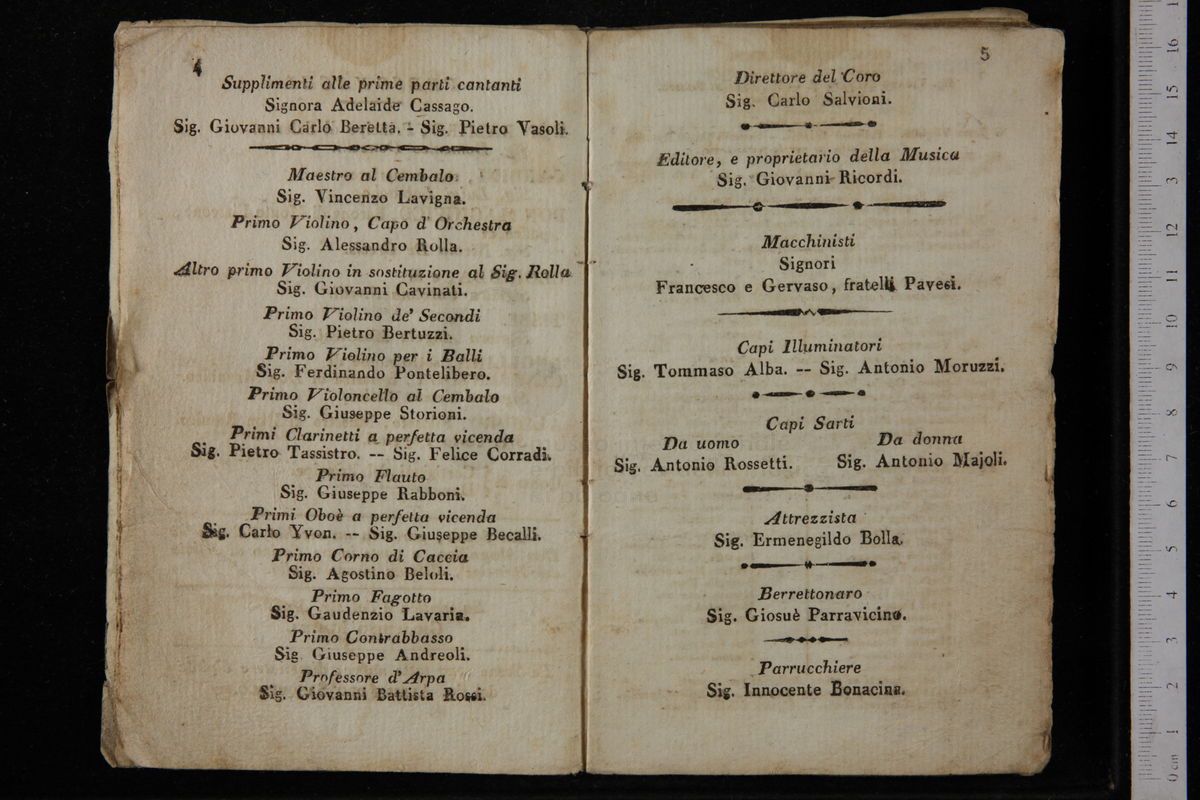 4
Supplimenti alle prime parti cantanti
Signora Adelaide Cassago.
Sig. Giovanni Carlo Beretta. - Sig. Pietro Vasoli.
Maestro al Cembalo
Sig. Vincenzo Lavigna.
Primo Violino, Capo d'Orchestra
Sig. Alessandro Rolla.
Altro primo Violino in sostituzione al Sig. Rolla
Sig. Giovanni Cavinati.
Primo Violino de' Secondi
Sig. Pietro Bertuzzi.
Primo Violino per i Balli
Sig. Ferdinando Pontelibero.
Primo Violoncello al Cembalo
Sig. Giuseppe Storioni.
Primi Clarinetti a perfetta vicenda
Sig. Pietro Tassistro. -- Sig. Felice Corradi.
Primo Flauto
Sig. Giuseppe Rabboni.
Primi Oboè a perfetta vicenda
Sig. Carlo Yvon. -- Sig. Giuseppe Becalli.
Primo Corno di Caccia
Sig. Agostino Beloli.
Primo Fagotto
Sig. Gaudenzio Lavaria.
Primo Contrabbasso
Sig. Giuseppe Andreoli.
Professore d'Arpa
Sig. Giovanni Battista Rossi.
5
Direttore del Coro
Sig. Carlo Salvioni.
Editore, e proprietario della Musica
Sig. Giovanni Ricordi.
Macchinisti
Signori
Francesco e Gervaso, fratelli Pavesi.
Capi Illuminatori
Sig. Tommaso Alba. -- Sig. Antonio Moruzzi.
Capi Sarti
Da uomo Da donna
Sig. Antonio Rossetti. Sig. Antonio Majoli.
Attrezzista
Sig. Ermenegildo Bolla.
Berrettonaro
Sig. Giosuè Parravicino.
Parrucchiere
Sig. Innocente Bonacina.
0 cm 1 2 3 4 5 6 7 8 9 10 11 12 13 14 15 16